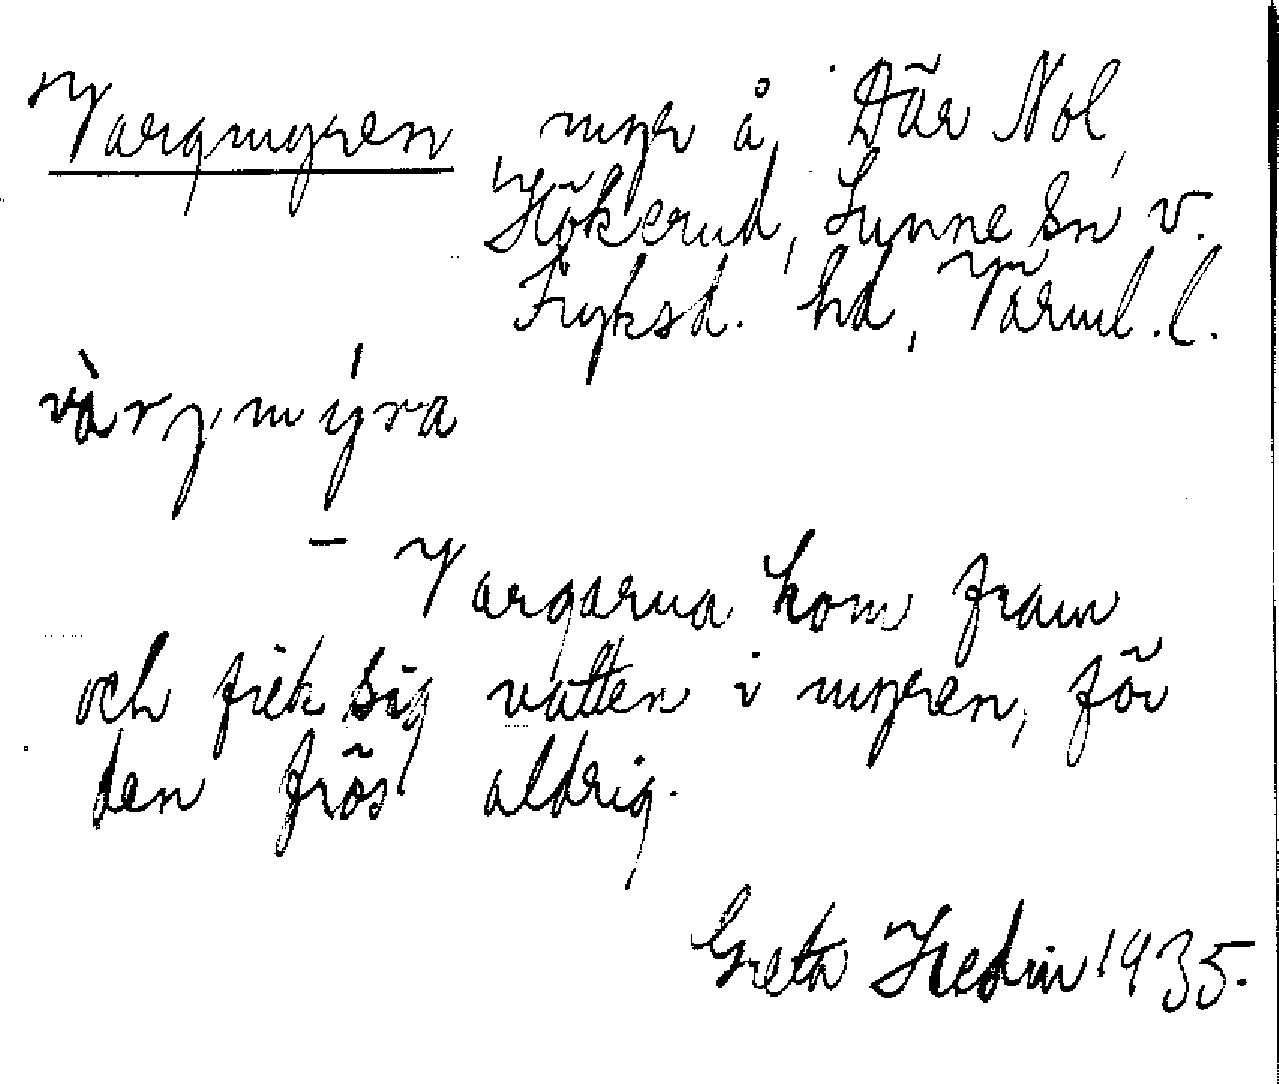 Vargmyren myr å Där Nol,
Hökerud, Sunne sn v.
Fryksd. hd, Värml.l.
vàrᶎmýra
– Vargarna kom fram
och fick sig vatten i myren, för
den frös aldrig.
Greta Hedin 1935.